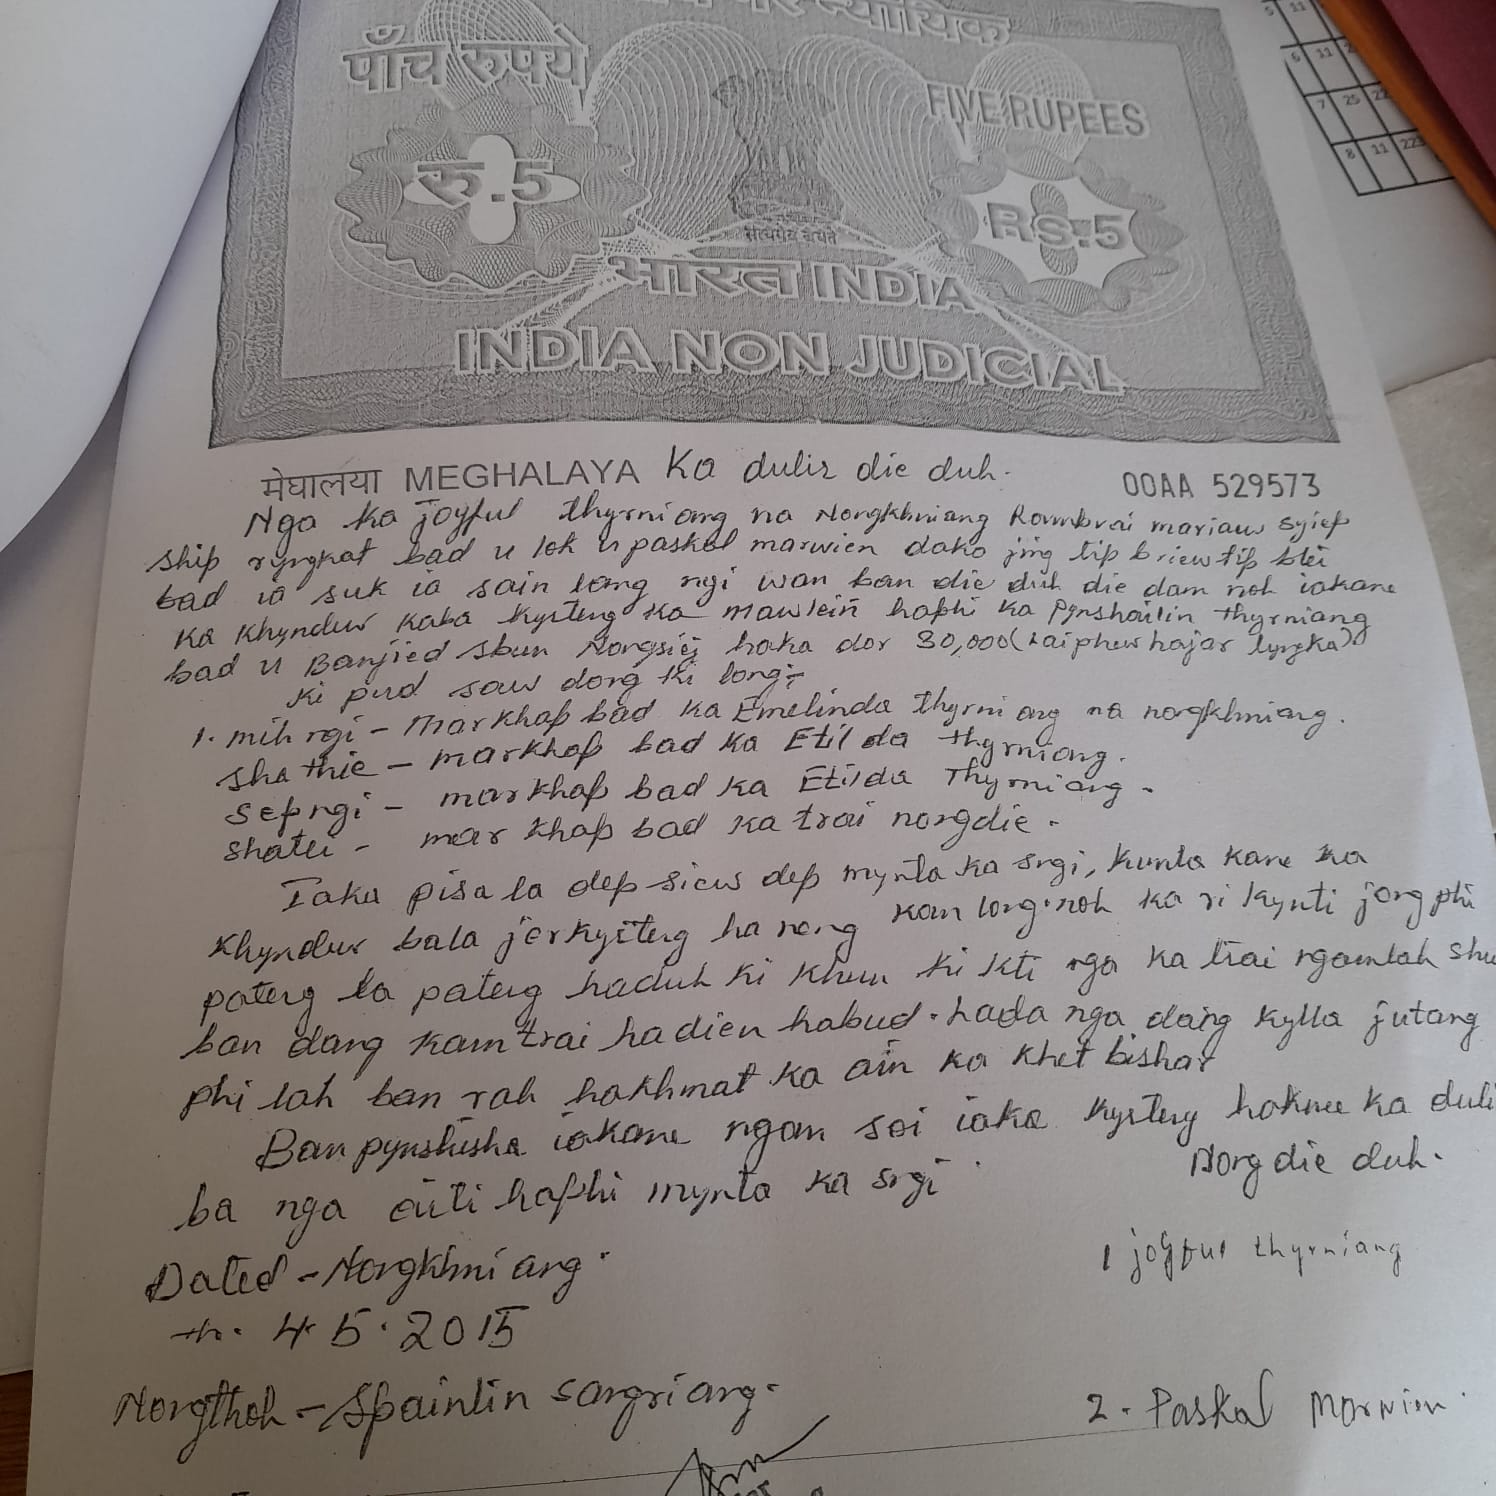 पाँच रुपये
FIVE RUPEES
रु.5
Rs.5
सत्यमेव जयते
भारत INDIA
INDIA NON JUDICIAL
मेघालया MEGHALAYA Ka dulir die duh.
00AA 529573
Nga ka joyful thyrniang na Nongkhniang Rombrai mariaw syiep
ship ryngkat bad u lok u paskal marwien dako jing tip briew tip blei
bad ia suk ia sain lang ngi wan ban die duh die dam noh iakane
ka khyndew kaba kyrteng ka mawlein haphi ka Pynshailin thyrniang
bad u Banjied sbun Nongsiej haka dor 30,000 (laiphew hajar lyngka)
ki pud saw dong ki long:-
1. mih ngi - markhap bad ka Emelinda thyrniang na nongkhniang.
shathie - markhap bad ka Etilda thyrniang.
sepngi - markhap bad ka Etilda Thyrniang.
shatei - mar khap bad ka trai nongdie.
Iaka pisa la dep siew dep mynta ka sngi, kumta kane ka
khyndew bala jerkyrteng ha neng kan long noh ka ri kynti jong phi
pateng la pateng haduh ki khun ki kti nga ka trai ngamlah shu
ban dang kam trai hadien habud. Lada nga dang kylla jutang
phi lah ban rah hakhmat ka ain ka khet bishar
Ban pynshisha iakane ngan soi iaka kyrteng haknee ka duli
ba nga aiti haphi mynta ka sngi
Nongdie duh.
Dated - Nongkhniang.
th. 4.5.2015
1 joyful thyrniang
Nongthoh - Spainlin sangriang.
2. Paskal Marwien